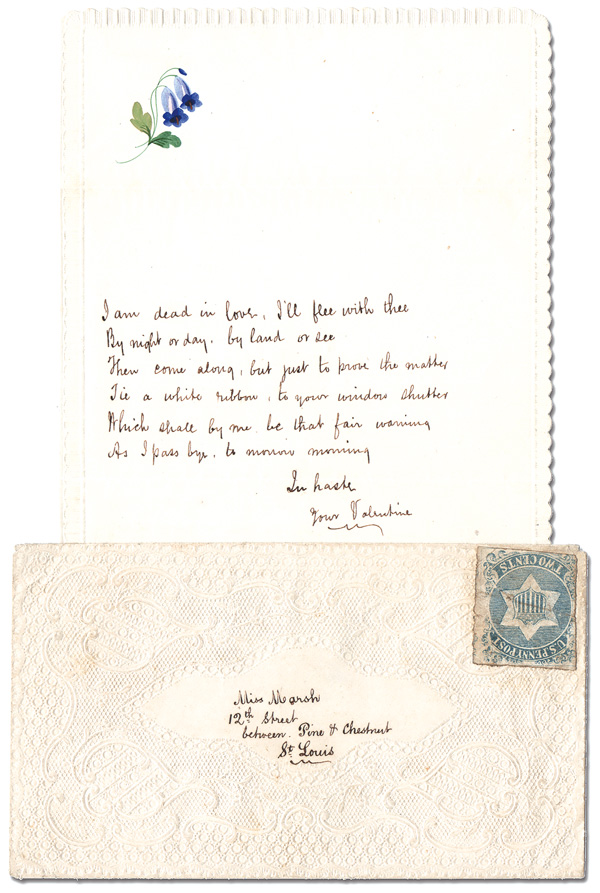 I am dead in love, I'll flee with thee
By night or day. by land or see
Then come along, but just to prove the matter
Tie a white ribbon, to your window shutter
Which shall by me be that fair warning
As I pass bye, to morrow morning
In haste
Your Valentine
U.S. PENNY POST
TWO CENTS.
Miss Marsh
12th Street
between. Pine & Chestnut
St Louis